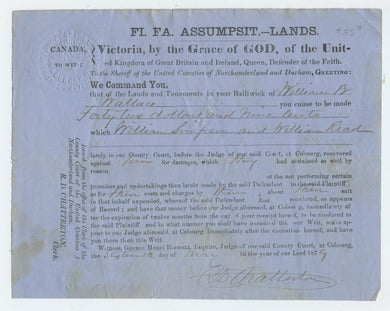 FI. FA. ASSUMPSIT.—LANDS.
CANADA,
TO WIT
Victoria, by the Grace of GOD, of the Unit-
ed Kingdom of Great Britain and Ireland, Queen, Defender of the Faith.
To the Sheriff of the United Counties of Northumberland and Durham, GREETING:
We Command You,
that of the Lands and Tenements in your Bailiwick of William
Wallace you cause to be made
Forty two dollars and nine cents
which William Simpson and William Read
lately in our County Court, before the Judge of our said Court, at Cobourg, recovered
against for damages, which they had sustained as well by
reason of the not performing certain
promises and undertakings then lately made by the said Defendant to the said Plaintiff
as to their costs and charges by them in their suit
in that behalf expended, whereof the said Defendant convicted, as appears
of Record; and have that money before our Judge aforesaid, at Cobourg immediately after
the expiration of twelve months from the day of your receipt hereof, to be rendered to
the said Plaintiff and in what manner you shall have executed this our Writ, make ap-
pear to our Judge aforesaid at Cobourg immediately after the execution hereof, and have
you there then this Writ.
WITNESS, GEORGE BOSWELL, ESQUIRE, Judge of our said County Court, at Cobourg,
the day of May in the year of our Lord 186
Chatterton
Issued from the Office of the
County Court of the United Counties of
Northumberland and Durham.
R. D. CHATTERTON,
Clerk.